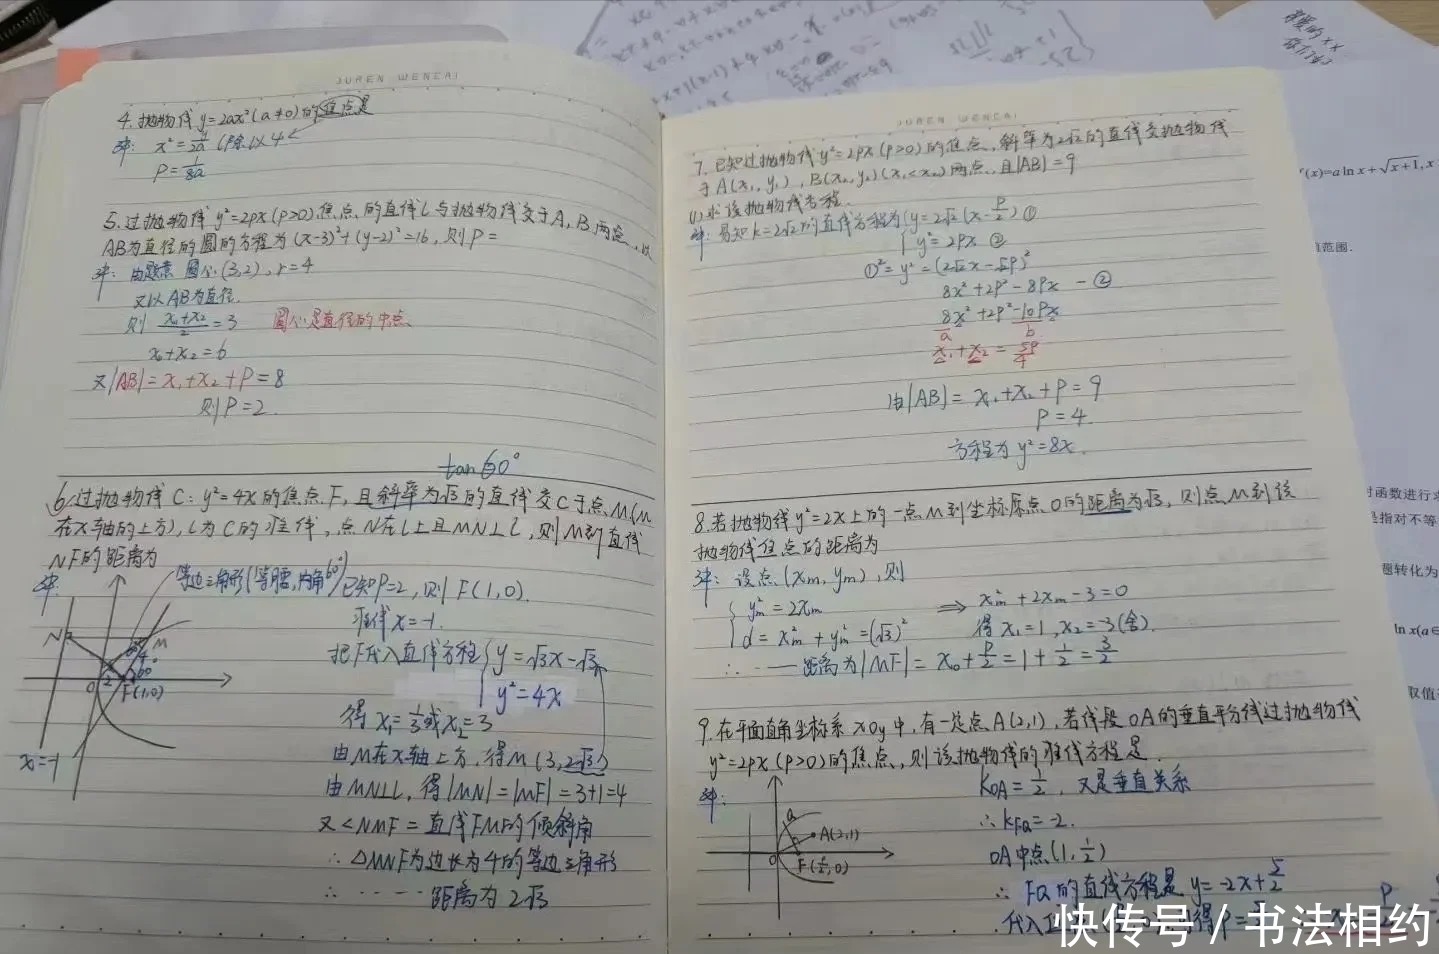 JUREN WENCAI
4. 抛物线 y=2ax²(a≠0)的焦点是
解: x²=y/2a (除以4
P=1/8a
5.过抛物线y²=2px(p>0)焦点的直线L与抛物线交于A,B两点,以
AB为直径的圆的方程为(x-3)²+(y-2)²=16,则P=
解: 由题意 圆心(3,2),r=4
又以AB为直径.
则 (x₁+x₂)/2=3 圆心是直径的中点
x₁+x₂=6
又|AB|=x₁+x₂+P=8
则P=2.
tan60°
6.过抛物线C:y²=4x的焦点F,且斜率为√3的直线交C于点M(M
在x轴的上方),L为C的准线,点N在L上且MN⊥L,则M到直线
NF的距离为
解:
等边三角形(等腰,内角60°)
已知P=2,则F(1,0).
准线x=-1.
把F代入直线方程{y=√3x-√3
y²=4x
得x₁=1/3或x₂=3
由M在x轴上方,得M(3,2√3)
由MN⊥L,得|MN|=|MF|=3+1=4
又<NMF=直线FM的倾斜角
∴△MNF为边长为4的等边三角形
∴ ……距离为2√3
N
M
60
0
2
F(1,0)
x=-1
JUREN WENCAI
7.已知过抛物线y²=2px(p>0)的焦点,斜率为2√2的直线交抛物线
于A(x₁,y₁),B(x₂,y₂)(x₁<x₂)两点,且|AB|=9
(1)求该抛物线方程.
解:易知k=2√2的直线方程为{y=2√2(x-p/2)①
y²=2px ②
①²=y²=(2√2x-√2p)²
8x²+2p²-8px -②
8x²+2p²-10px
a b
x₁+x₂=5p/4
由|AB|=x₁+x₂+P=9
P=4.
方程为y²=8x.
8.若抛物线y²=2x上的一点M到坐标原点O的距离为√3,则点M到该
抛物线焦点的距离为
解:设点(xm,ym),则
{ym²=2xm ⇒ xm²+2xm-3=0
d=xm²+ym²=(√3)² 得x₁=1,x₂=-3(舍).
∴ ……距离为|MF|=x₀+P/2=1+1/2=3/2
9.在平面直角坐标系xOy中,有一定点A(2,1),若线段OA的垂直平分线过抛物线
y²=2px(p>0)的焦点,则该抛物线的准线方程是
解:
KOA=1/2,又是垂直关系
∴kFQ=-2.
OA中点(1,1/2)
∴FQ的直线方程是y=-2x+5/2
代入
得P=
A(2,1)
F(p/2,0)
0
(x)=alnx+√(x+1),x
范围.
对函数进行求
是指对不等
题转化为
ln x(a∈
取值
快传号 / 书法相约